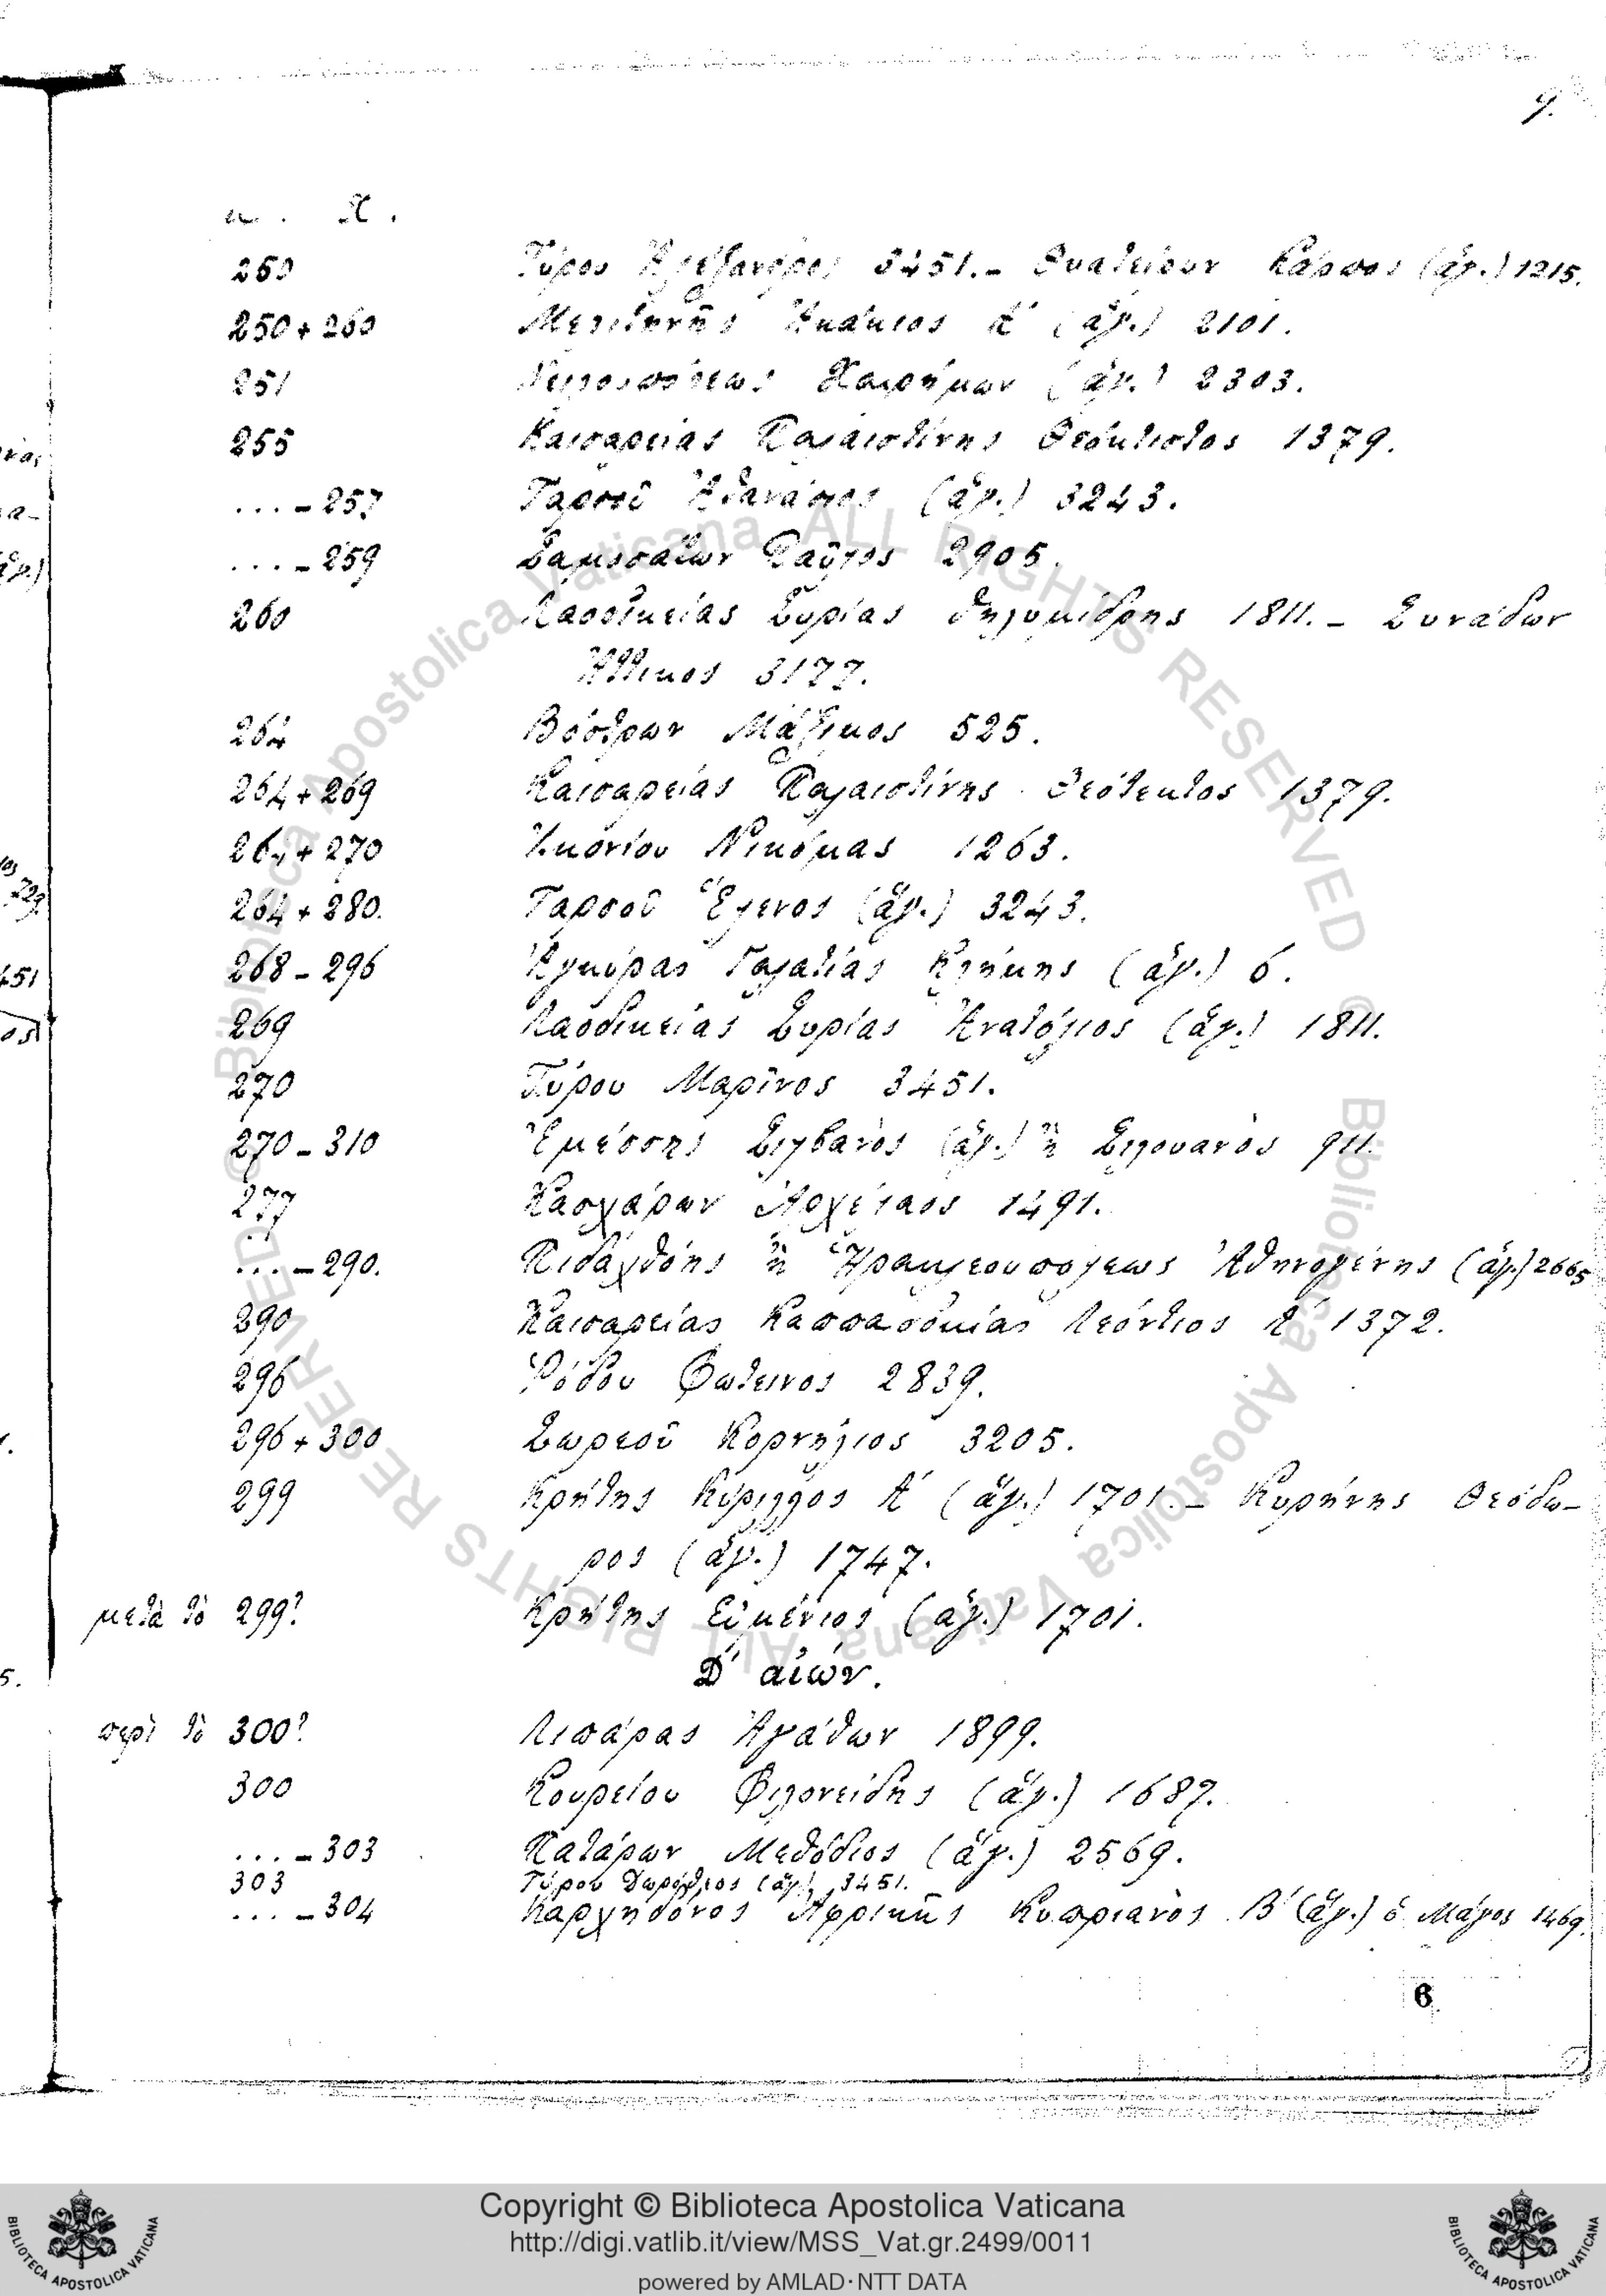 9.
μ. Χ.
250 Τύρου Ἀλέξανδρος 3451. – Θυατείρων Κάρπος (ἅγ.) 1215.
250 + 260 Μελιτηνῆς Ἀκάκιος Α΄ (ἅγ.) 2101.
251 Νειλουπόλεως Χαιρήμων (ἅγ.) 2303.
255 Καισαρείας Παλαιστίνης Θεόκτιστος 1379.
... – 257 Ταρσοῦ Ἀθανάσιος (ἅγ.) 3243.
... – 259 Σαμοσάτων Παῦλος 2905.
260 Λαοδικείας Συρίας Θηλυμίδρης 1811. – Συνάδων
Ἀττικος 3177.
264 Βόστρων Μάξιμος 525.
264 + 269 Καισαρείας Παλαιστίνης Θεότεκτος 1379.
264 + 270 Ἰκονίου Νικόμας 1263.
264 + 280. Ταρσοῦ Ἕλενος (ἅγ.) 3243.
268 – 296 Ἀγκύρας Γαλατίας Κλήμης (ἅγ.) 6.
269 Λαοδικείας Συρίας Ἀνατόλιος (ἅγ.) 1811.
270 Τύρου Μαρῖνος 3451.
270 – 310 Ἐμέσσης Σιλβανὸς (ἅγ.) ἢ Σιλουανὸς 911.
277 Κασχάρων Ἀρχέλαος 1491.
... – 290. Πιδαχθόης ἢ Ἡρακλεουπόλεως Ἀθηνογένης (ἅγ.) 2665
290 Καισαρείας Καππαδοκίας Λεόντιος Α΄ 1372.
296 Ῥόδου Φωτεινος 2839.
296 + 300 Σωρεοῦ Κορνήλιος 3205.
299 Κρήτης Κύριλλος Α΄ (ἅγ.) 1701. – Κυρήνης Θεόδω–
ρος (ἅγ.) 1747.
μετὰ τὸ 299? Κρήτης Εὐμένιος (ἅγ.) 1701.
Δ΄ αἰών.
περὶ τὸ 300? Λιπάρας Ἀγάθων 1899.
300 Κουρείου Φιλονείδης (ἅγ.) 1687.
... – 303 Πατάρων Μεθόδιος (ἅγ.) 2569.
303 Τύρου Δωρόθεος (ἅγ.) 3451.
... – 304 Καρχηδόνος Ἀφρικῆς Κυπριανὸς Β΄ (ἅγ.) ὁ Μάγος 1469.
6
Copyright © Biblioteca Apostolica Vaticana
http://digi.vatlib.it/view/MSS_Vat.gr.2499/0011
powered by AMLAD·NTT DATA